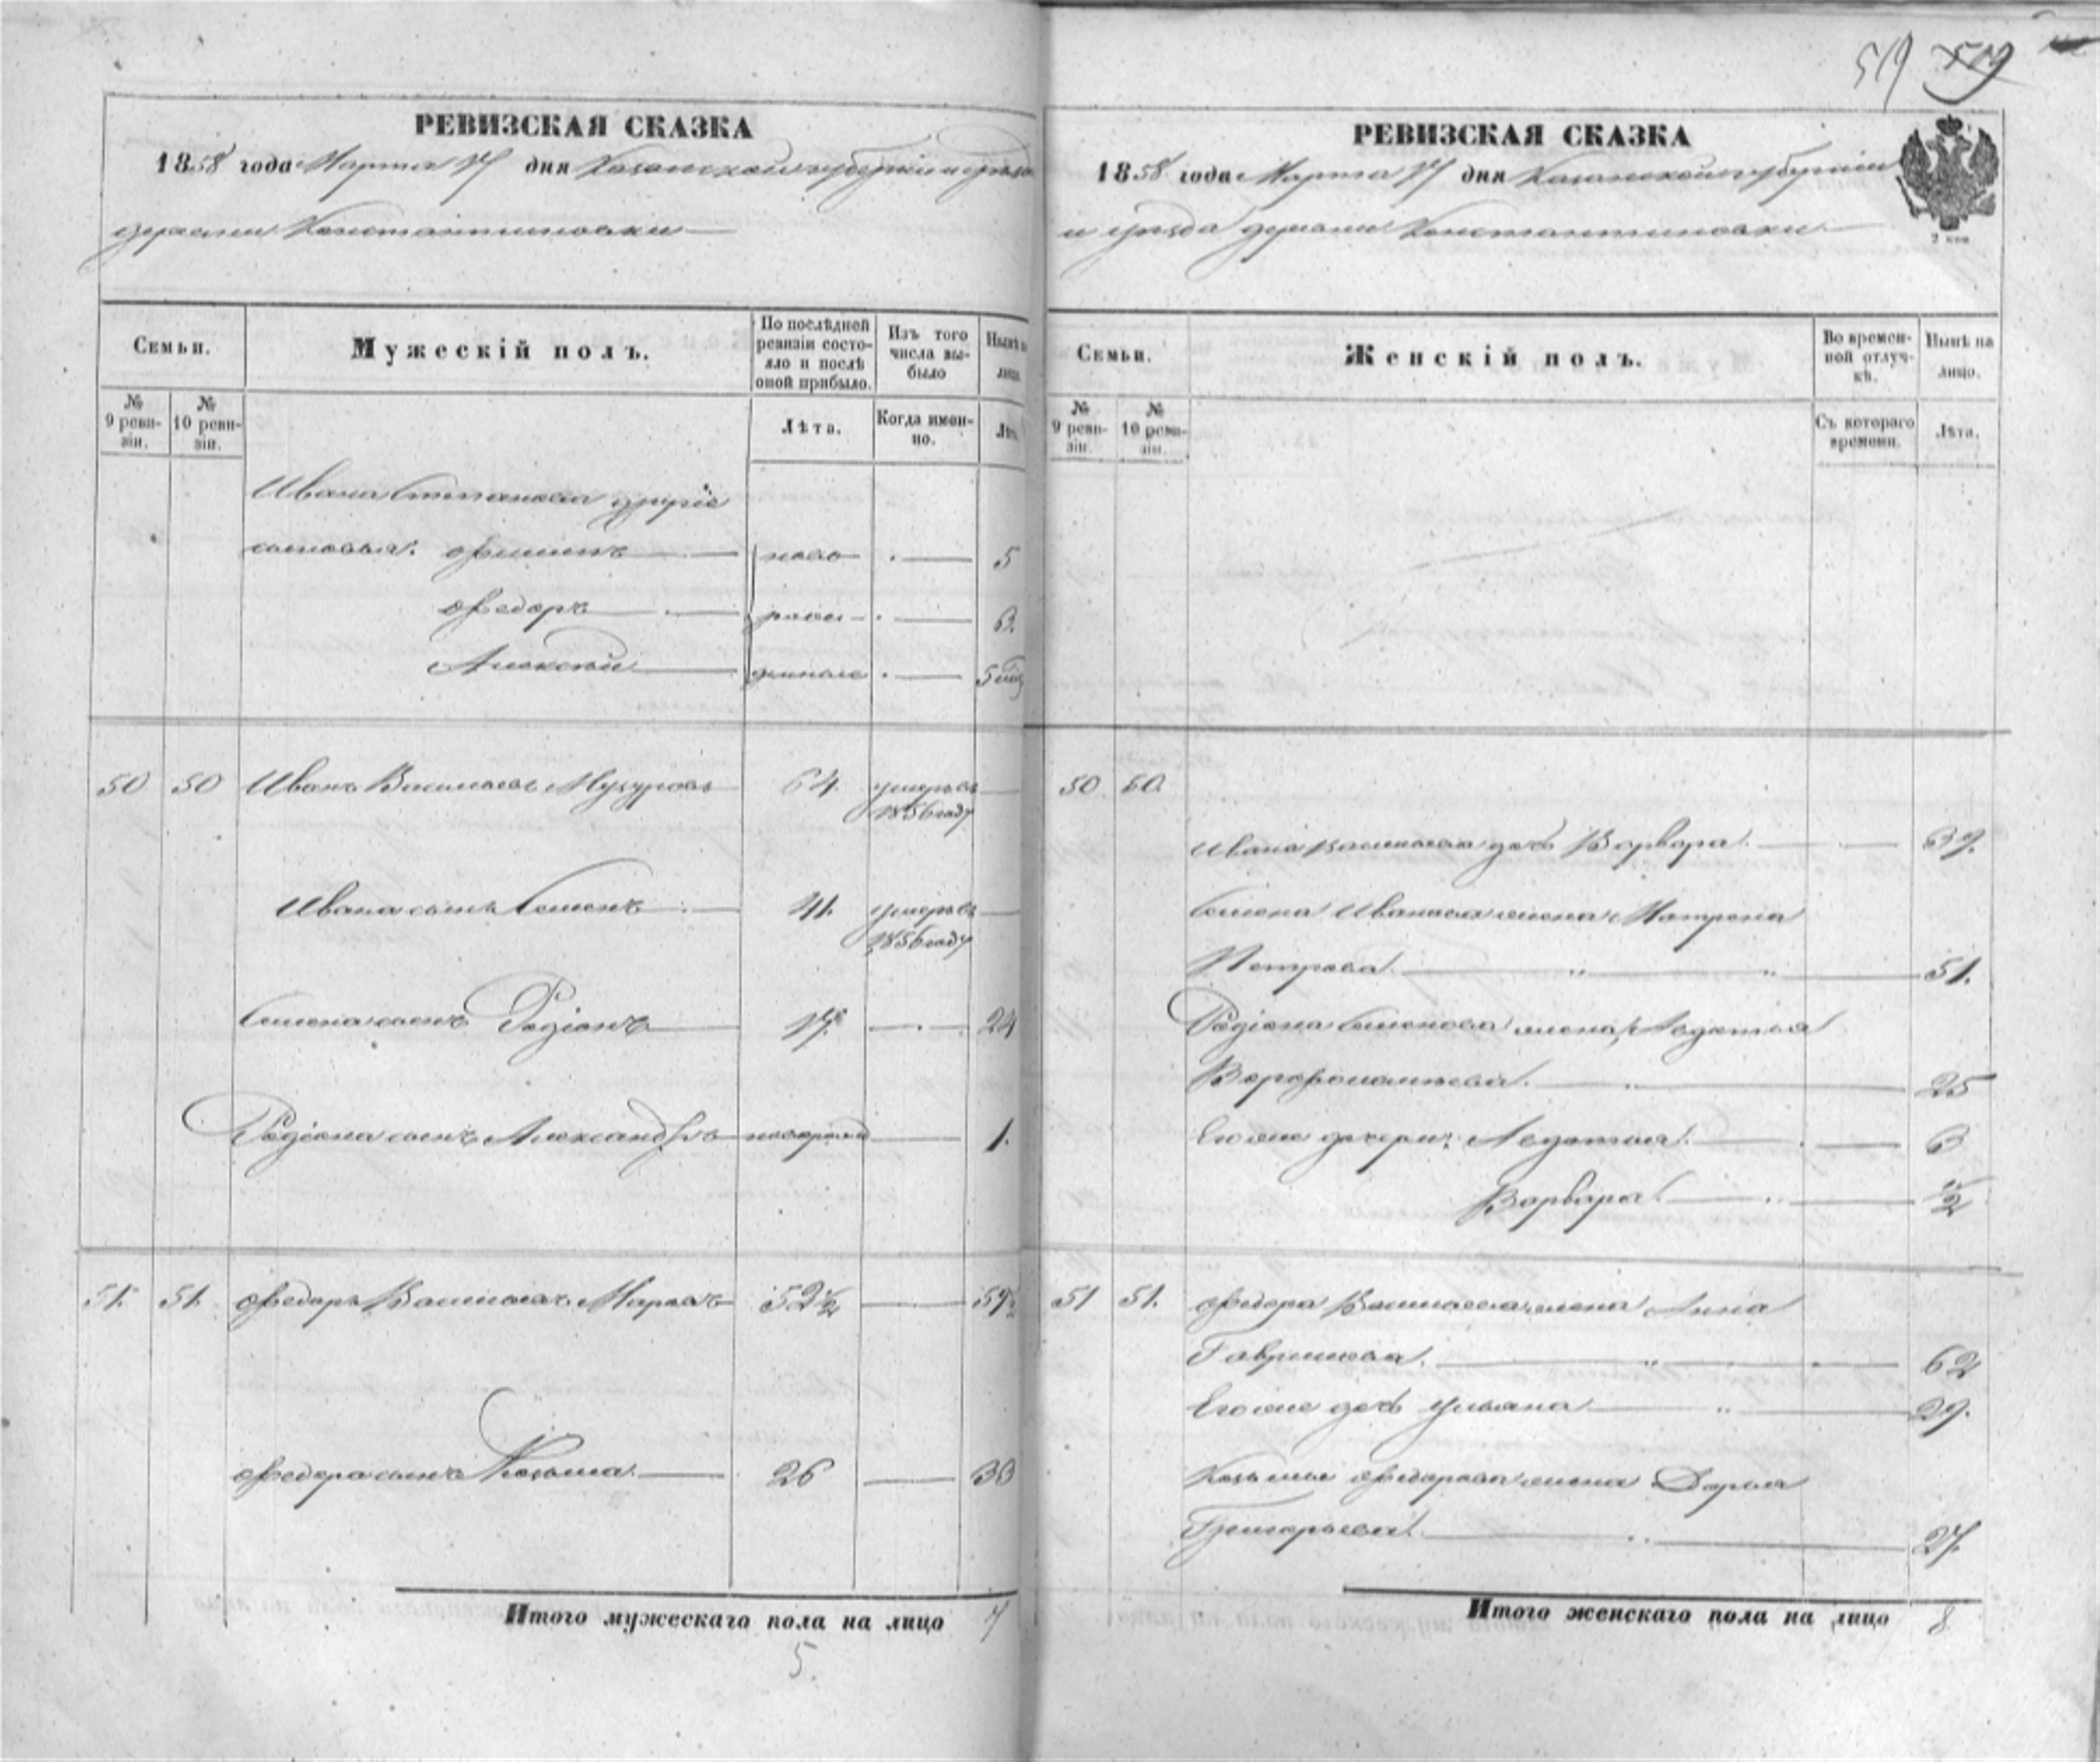 519 519
РЕВИЗСКАЯ СКАЗКА
1858 года Марта 17 дня Казанской губерніи и уѣзда
деревни Константиновки
Семьи.
Мужескій полъ.
По послѣдней ревизіи состояло и послѣ оной прибыло.
Изъ того числа выбыло
Нынѣ на лицо.
№ 9 ревизіи.
№ 10 ревизіи.
Лѣта.
Когда именно.
Лѣта.
Ивана Степанова другіе
сыновья: Филипъ ново 5
Федоръ рож 3.
Алексѣй денные 5
50 50 Иванъ Васильевъ 64. умеръ въ 1856 году
Ивана сынъ Семенъ 41. умеръ въ 1856 году
Семена сынъ Родіонъ 17. 24
Родіона сынъ Александръ новорожд 1.
51. 51. Федоръ Васильевъ Маровъ 52½ 59½
Федора сынъ Козьма 26 33
Итого мужескаго пола на лицо 7
5.
РЕВИЗСКАЯ СКАЗКА
1858 года Марта 17 дня Казанской губерніи
и уѣзда деревни Константиновки
2 коп
Семьи.
Женскій полъ.
Во временной отлучкѣ.
Нынѣ на лицо.
№ 9 ревизіи.
№ 10 ревизіи.
Съ котораго времени.
Лѣта.
50 50.
Ивана Васильева дочь Варвара 39.
Семена Иванова жена Матрена
Петрова 51.
Родіона Семенова жена Авдотья
Варфоломѣева 25
Его же дочери: Авдотья 3
Варвара ½
51 51. Федора Васильева жена Анна
Гаврилова 62
Его же дочь Ульяна 29.
Козьмы Федорова жена Дарья
Григорьева 27.
Итого женскаго пола на лицо 8